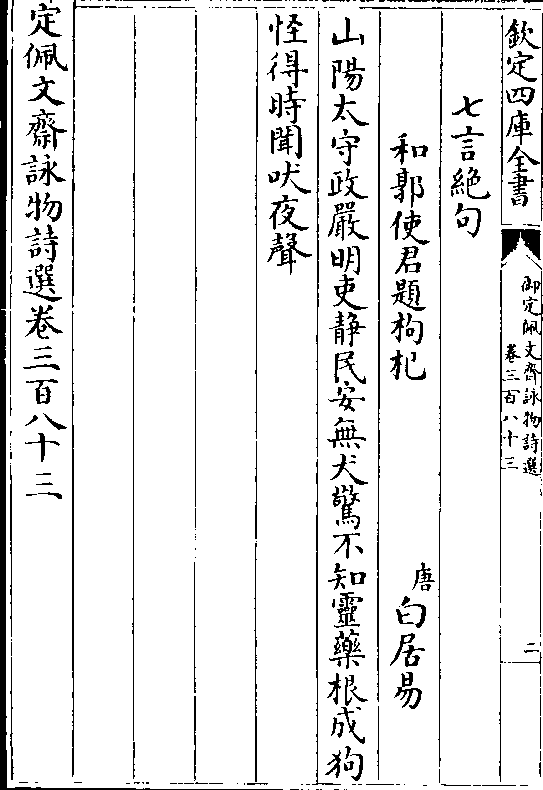 欽定四庫全書
御定佩文齋詠物詩選
卷三百八十三
二
七言絶句
和郭使君題枸杞
唐白居易
山陽太守政嚴明吏静民安無犬驚不知靈藥根成狗
怪得時聞吠夜聲
定佩文齋詠物詩選卷三百八十三